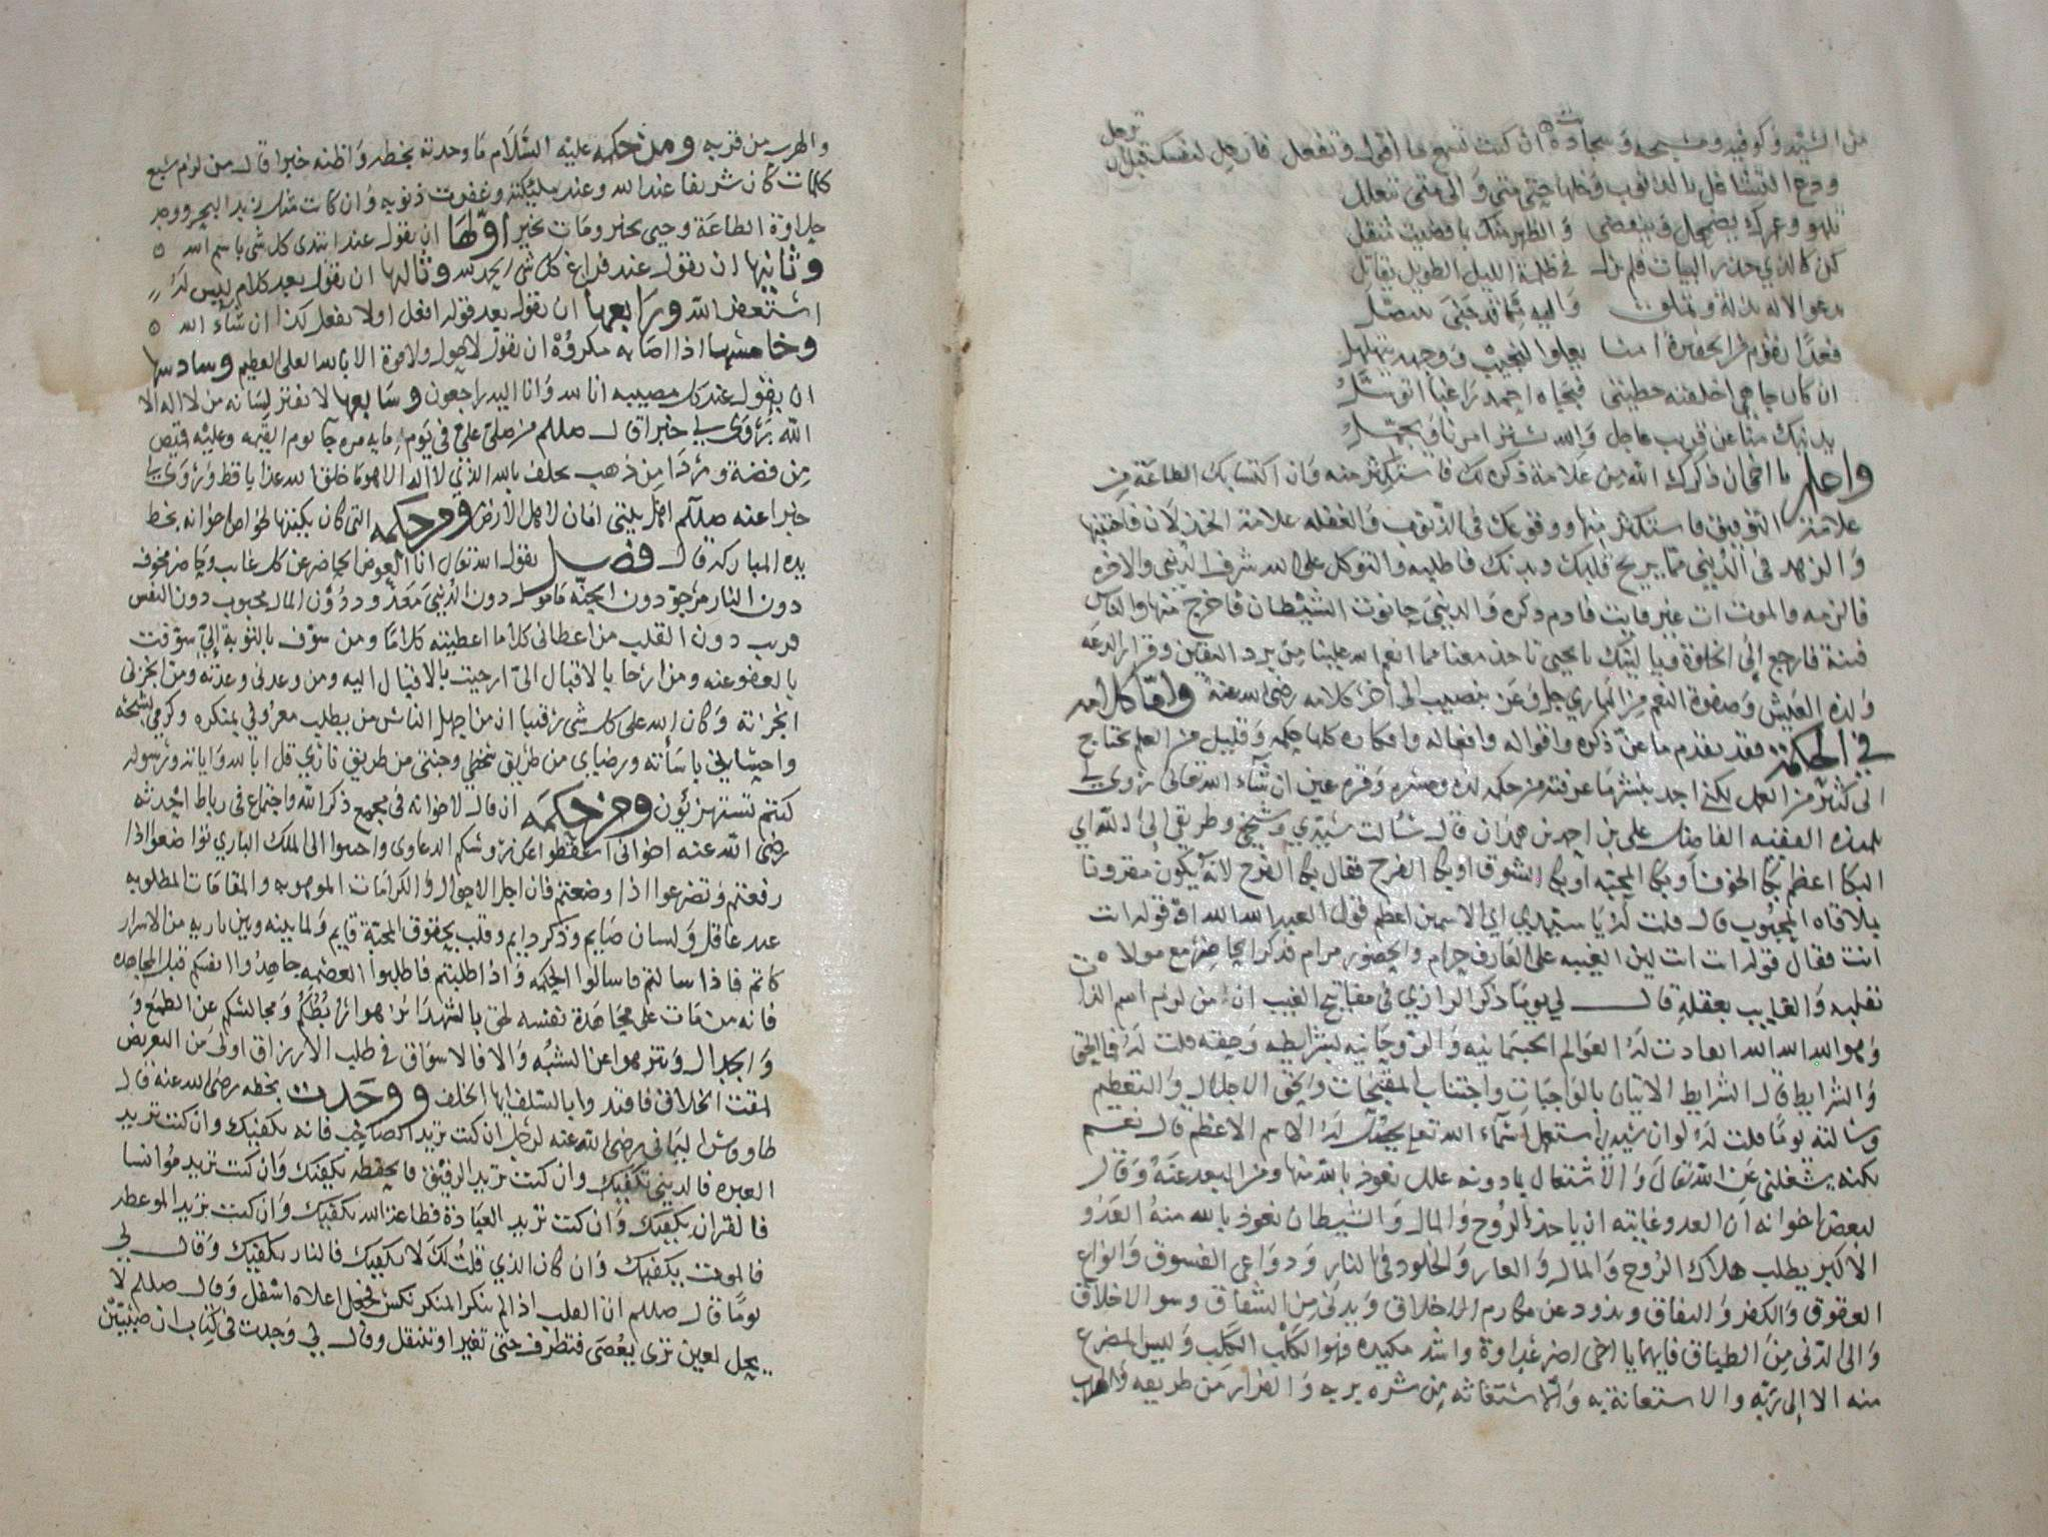 ان كنت تسمع ما اقول وتفعل فارحل لنفسك قبل ان ترحل
ودع التشاغل بالذنوب وخلها حتى متى والى متى تتعلل
تلهو وعمرك يضمحل وينقضي والظهر منك
كن كالذي حذر البيات فلم يزل في ظلمة الليل الطويل
يدعو الاله بذلة وتملق واليه
فغدا يقوم من الحفيرة امنا يعلوا النجيب ووجهه يتهلل
ان كان جاهي اخلقته خطيئتي فبجاه احمد راغبا اتوسل
عن قريب عاجل والله
واعلم يا اخي ان ذكرك الله من علامة ذكره لك فاستكثر منه وان اكتسابك الطاعة من
علامة التوفيق فاستكثر منها ووقوعك في الذنوب والغفلة علامة الخذلان فاجتنبها
والزهد في الدنيى مما يريح قلبك وبدنك فاطلبه والتوكل على الله شرف الدنيى والاخرة
فالزمه والموت ات غير فايت فادم ذكره والدنيى حانوت الشيطان فاخرج منها والناس
فتنة فارجع الى الخلوة فيا ليتك يا يحيى تاخذ معنا مما انعم الله علينا من برد اليقين وقرار الدعة
ولذة العيش وصفوة النعم من الباري جل وعز بنصيب الى اخر كلامه رضي الله عنه واما كلامه
في الحكمة فقد تقدم ما عن ذكره واقواله وافعاله وافكاره كلها حكمة وقليل من العلم يحتاج
الى كثير من العمل لكني اجد بنشر ما عرفته من حكمه لذة ومسرة وقرة عين ان شاء الله تعالى روى لي
تلميذه الفقيه الفاضل علي بن احمد بن همدان قال سألت سيدي وشيخي وطريقي الى الله اي
البكا اعظم بكا الخوف او بكا المحبة او بكا الشوق او بكا الفرح فقال بكا الفرح لانه يكون مقرونا
بملاقاه المحبوب قال قلت له يا سيدي اي الاسمين اعظم قول العبد الله الله او قوله انت
انت فقال قوله انت انت لان الغيبه على العارف حرام والحضور مرام فذكر الحاضر مع مولاه
بقلبه والغايب بعقله قال لي يوما ذكر الرازي في مفاتيح الغيب ان من لزم اسم الذات
وهو الله الله الله انقادت له العوالم الجسمانيه والروحانيه بشرايطه وحقه قلت له فما الحق
والشرايط قال الشرايط الاتيان بالواجبات واجتناب المقبحات والحق الاجلال والتعظيم
وسالته يوما قلت له لو ان سيدي استعمل اسماء الله تعالى له الاسم الاعظم قال نعم
لكنه يشغلني عن الله تعالى والاشتغال بما دونه علل نعوذ بالله منها ومن البعد عنه وقال
لبعض اخوانه ان العدو غايته ان ياخذ الروح والمال والشيطان نعوذ بالله منه العدو
الاكبر يطلب هلاك الروح والمال والعار والخلود في النار ودواعي الفسوق وانواع
العقوق والكفر والنفاق ويذود عن مكارم الاخلاق ويدني من الشقاق وسو الاخلاق
والى الدنى من الطباق فايهما يا اخي اضر عداوة واشد مكيده فهو الكلب الكلب وليس المفزع
منه الا الى ربه والاستعانة به والاستغاثه من شره بربه والفرار من طريقه والهرب
والهرب من قربه ومن حكمه عليه السلام ما وجدته بخطه واظنه خبرا قال من لزم سبع
كلمات كان شريفا عند الله وعند مليكته وغفرت ذنوبه وان كانت مثل زبد البحر ووجد
حلاوة الطاعة وحيي بخير ومات بخير اولها ان يقول عند ابتدى كل شي باسم الله
وثانيها ان يقول عند فراغ كل شي الحمد لله وثالثها ان يقول بعد كلام ليس له
استغفر الله ورابعها ان يقول بعد قوله افعل اولا يفعل كذا ان شاء الله
وخامسها اذا اصابه مكروه ان يقول لا حول ولا قوة الا بالله العلي العظيم وسادسها
ان يقول عند كل مصيبه انا لله وانا اليه راجعون وسابعها لا يفتر لسانه من لا اله الا
الله وروى لي خبرا قال صللم من صلى علي في يوم مايه مره جا يوم القيمه وعليه قميص
من فضة وردا من ذهب يحلف بالله الذي لا اله الا هو ما خلق الله عذابا قط وروى لي
خبرا عنه صللم اهل بيتي امان لاهل الارض ومن حكمه التي كان يكتبها لخواص اخوانه بخط
يده المباركه قال فصل يقول الله تعالى انا العوض الحاضر عن كل غايب وحاضر مخوف
دون النار مرجو دون الجنة مامول دون الدنيى معد ودون المال محبوب دون النفس
قريب دون القلب من اعطاني كلاما اعطيته كلاما ومن سوف بالتوبة الي سوفت
بالعفو عنه ومن ارخا بالاقبال الي ارخيت بالاقبال اليه ومن وعدني وعدته ومن انجزني
انجزته وكان الله على كل شي رقيبا ان من اجهل الناس من يطلب معروفي بمنكره وكرمي بشحه
واحساني باسأته ورضاي من طريق سخطي وجنتي من طريق ناري قل ابالله واياته ورسوله
كنتم تستهزئون ومن حكمه ان قال لاخوانه في مجمع ذكر الله واجتماع في رباط احدثه
رضي الله عنه اخواني اسقطوا عن رؤسكم الدعاوى واحملوا الى الملك الباري تواضعوا اذا
رفعتم وتضرعوا اذا وضعتم فان اجل الاحوال والكرامات الموهوبه والمقامات المطلوبه
عبد عاقل ولسان صايم وذكر دايم وقلب بحقوق المحبة قايم ولما بينه وبين باريه من الاسرار
كاتم فاذا سالتم فاسالوا الحكمه واذا طلبتم فاطلبوا العصمه جاهدوا انفسكم قبل المجاهده
فانه من مات على مجاهدة نفسه لحق بالشهدا نزهوا رابطتكم ومجالسكم عن الطمع و
والجدال وتنزهوا عن الشبه والا فالاسواق في طلب الارزاق اولى من التعرض
لمقت الخلاق فاقتدوا بالسلف ايها الخلف ووجدت بخطه رضي الله عنه قال
طاووس اليماني رضي الله عنه لرجل ان كنت تريد الصاحب فالله يكفيك وان كنت تريد
العبره فالدنيى تكفيك وان كنت تريد الرفيق فالحفظه يكفيك وان كنت تريد مؤانسا
فالقران يكفيك وان كنت تريد العبادة فطاعة الله تكفيك وان كنت تريد الموعظه
فالموت يكفيك وان كان الذي قلت لك لا يكفيك فالنار تكفيك وقال لي
يوما قال صللم ان القلب اذا لم ينكر المنكر نكس فجعل اعلاه اسفل وقال صللم لا
يحل لعين ترى الله يعصى فتطرف حتى تغير او تنتقل وقال لي وجدت في كتاب ان صبيين